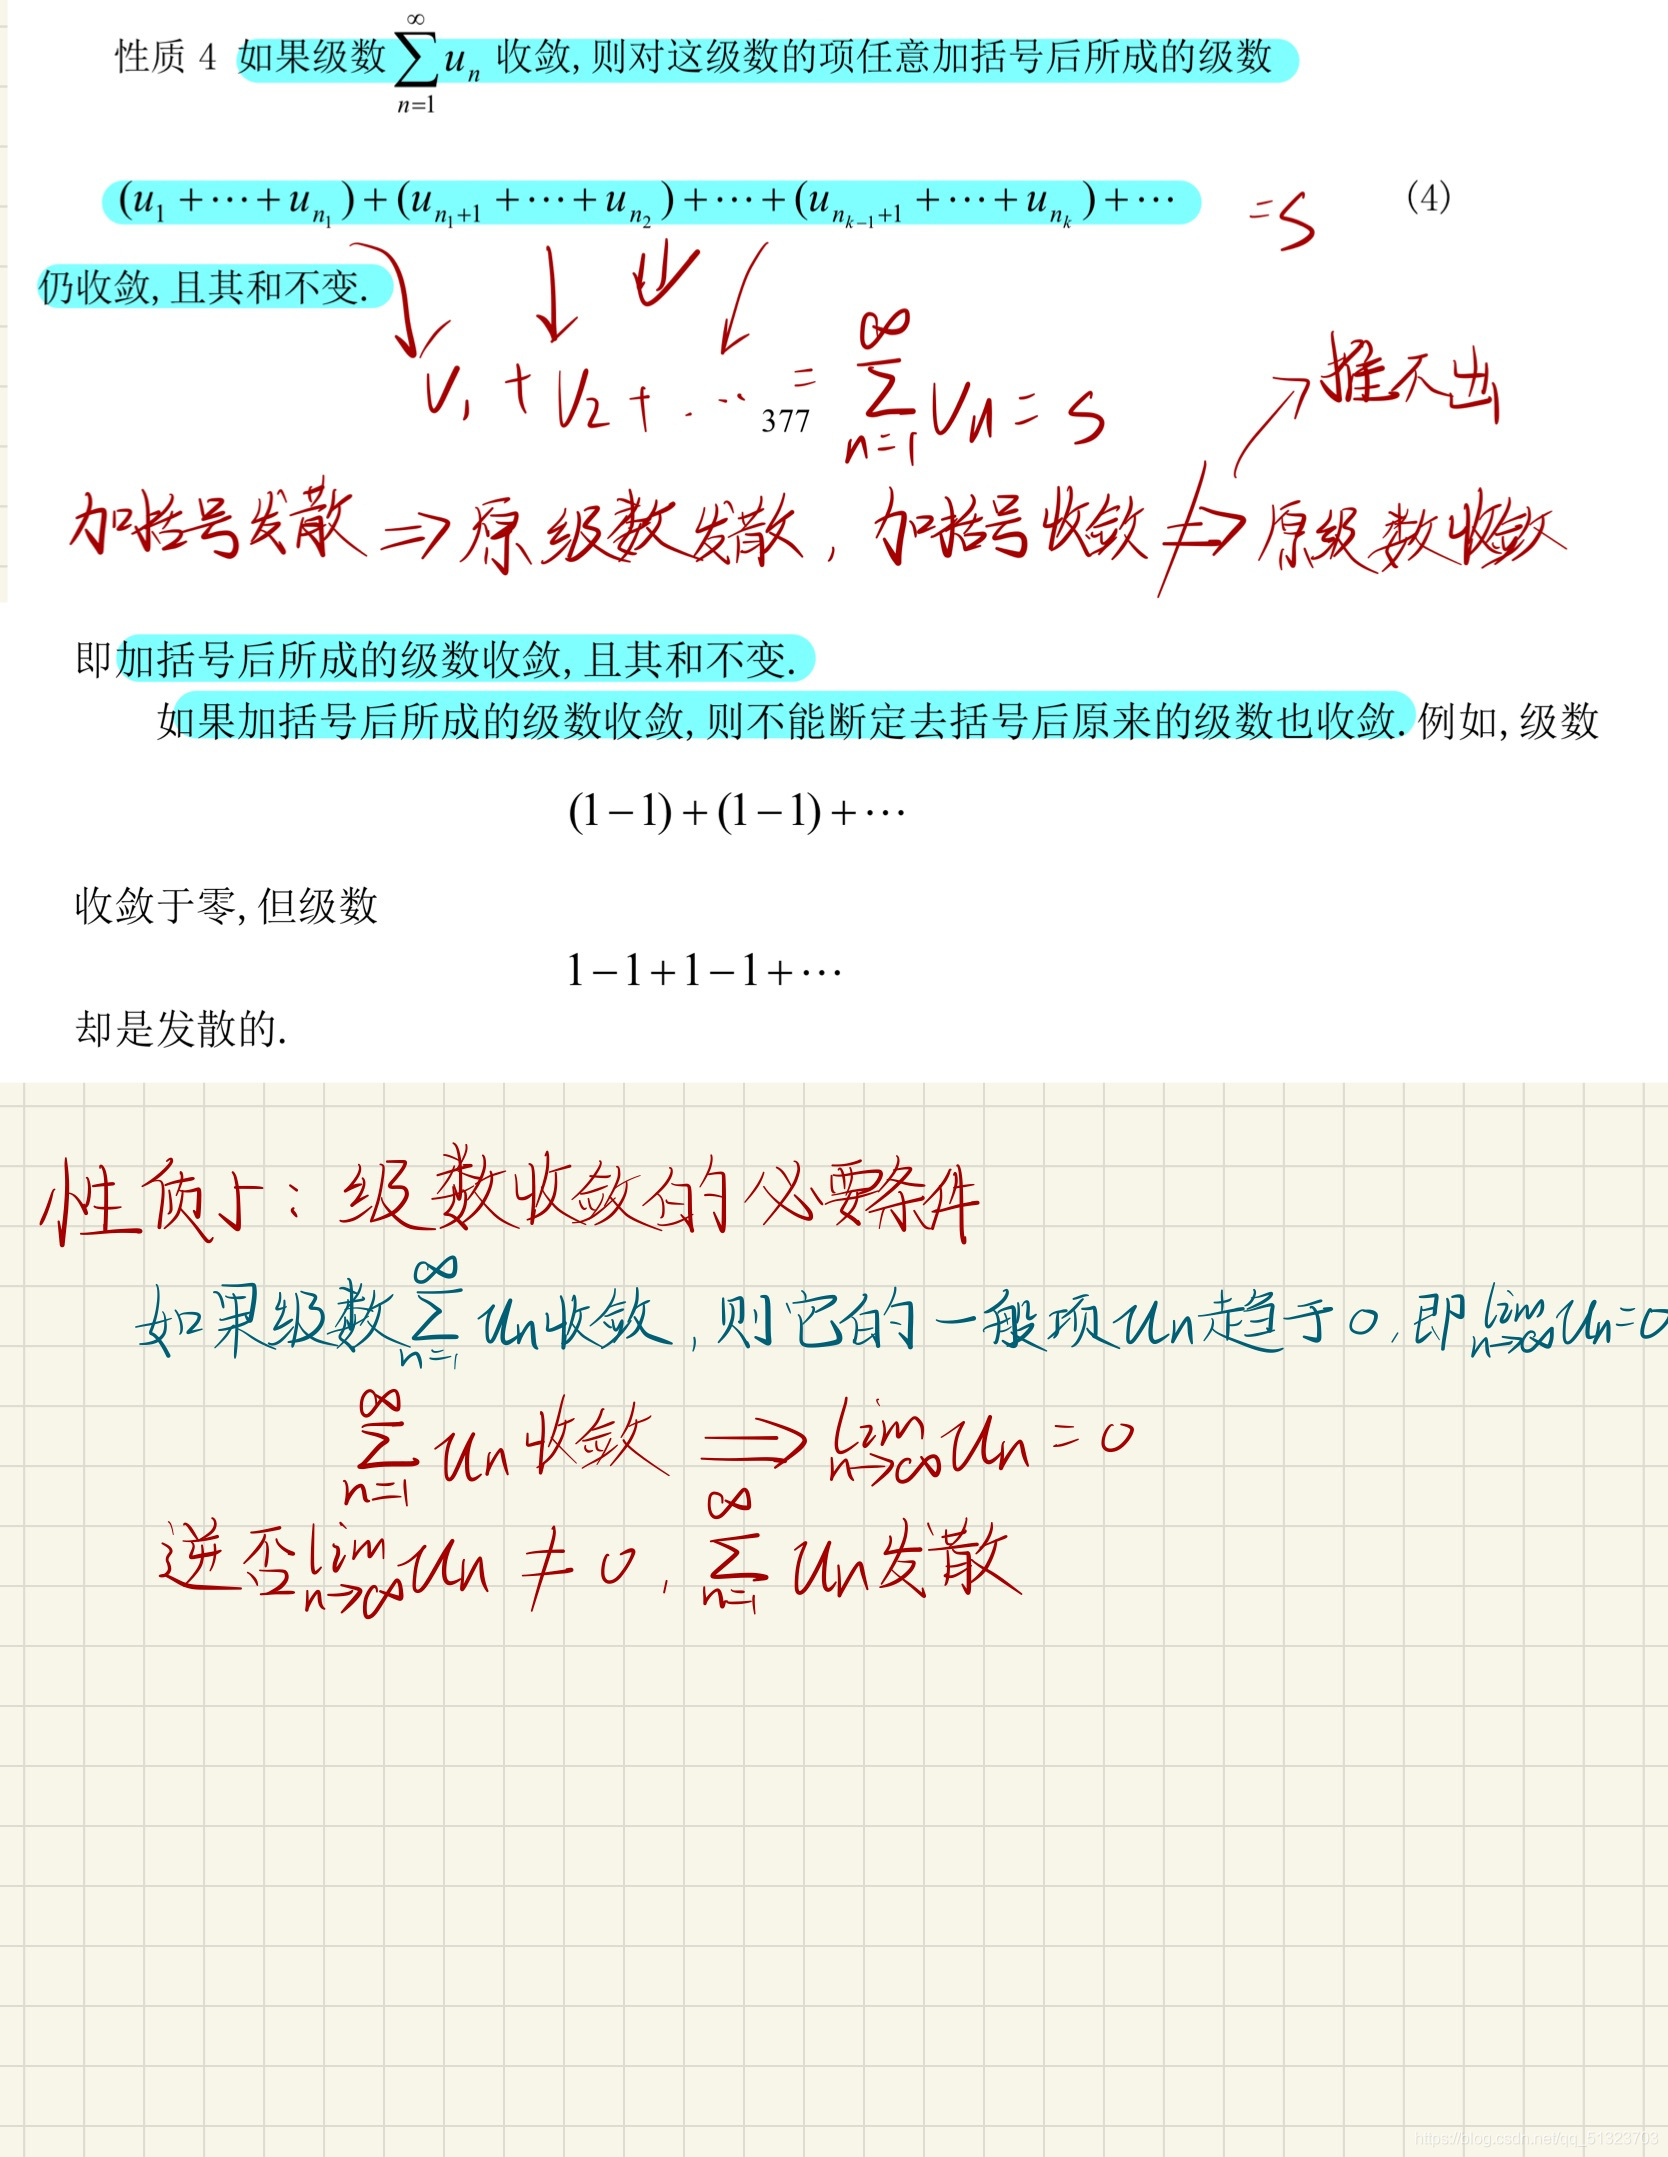 性质 4 如果级数 ∑_{n=1}^{∞} u_n 收敛, 则对这级数的项任意加括号后所成的级数
(u_1 +⋯+ u_{n_1}) + (u_{n_1+1} +⋯+ u_{n_2}) +⋯+ (u_{n_{k-1}+1} +⋯+ u_{n_k}) +⋯ = s (4)
仍收敛, 且其和不变.
v_1 + v_2 + ⋯ = ∑_{n=1}^{∞} v_n = s
推不出
377
加括号发散 ⇒ 原级数发散, 加括号收敛 ⇏ 原级数收敛
即加括号后所成的级数收敛, 且其和不变.
如果加括号后所成的级数收敛, 则不能断定去括号后原来的级数也收敛. 例如, 级数
(1−1)+(1−1)+⋯
收敛于零, 但级数
1−1+1−1+⋯
却是发散的.
性质5: 级数收敛的必要条件
如果级数 ∑_{n=1}^{∞} u_n 收敛, 则它的一般项 u_n 趋于 0, 即 lim_{n→∞} u_n = 0
∑_{n=1}^{∞} u_n 收敛 ⟹ lim_{n→∞} u_n = 0
逆否 lim_{n→∞} u_n ≠ 0, ∑_{n=1}^{∞} u_n 发散
https://blog.csdn.net/qq_51323703